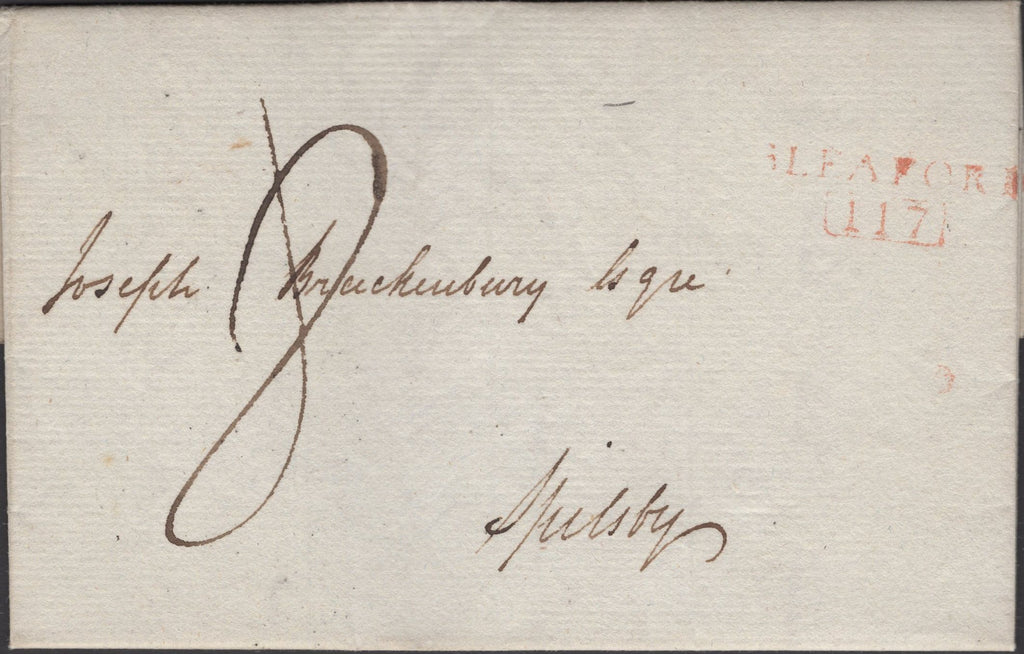 SLEAFORD
117
8
Joseph Brackenbury Esqre
Spilsby